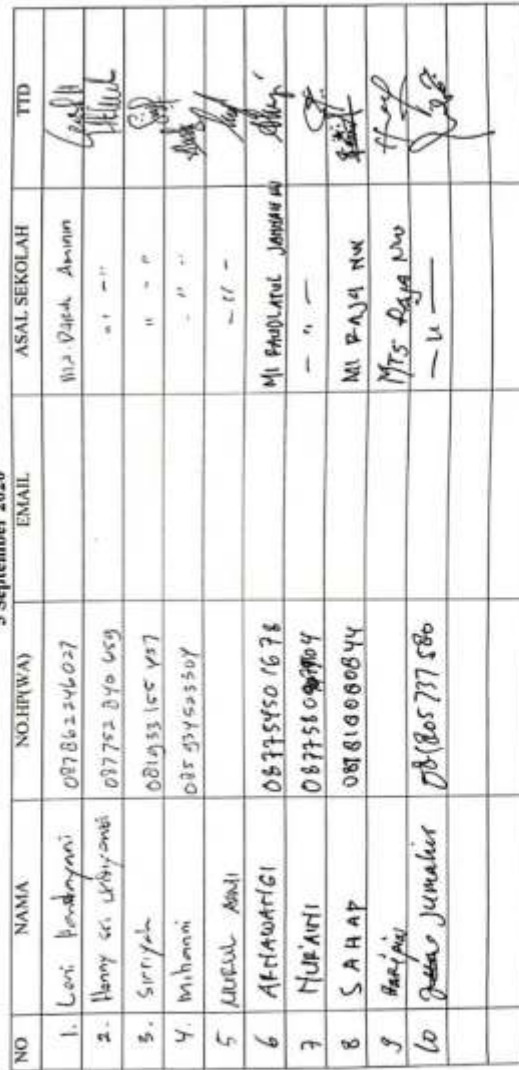 5 September 2020
NO NAMA NO.HP(WA) EMAIL ASAL SEKOLAH TTD
1. Leni 087862246027 MA. Darul Aminin
2. Henny Sri 087752 840 659 - " -
3. Sirriyah 081933 155 457 " - "
4. Mihanni 085 934523304 - " -
5 NURUL - " -
6 ARHAWATIGI 087754501678 MI RAUDLATUL JANNAH NW
7 NUR'AINI - " -
8 SAHAP 087810080844 MI RAJA NW
9 HARI MTS RAJA NW
10 Jumahir 081805 737 580 - " -